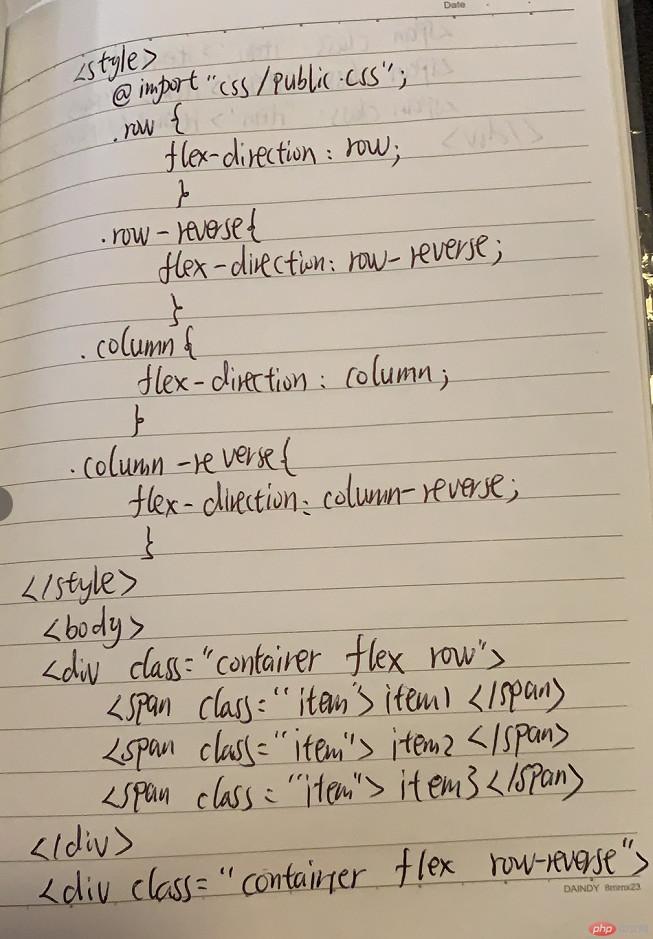 Date
<style>
@import "css/public.css";
.row {
flex-direction: row;
}
.row-reverse{
flex-direction: row-reverse;
}
.column{
flex-direction: column;
}
.column-reverse{
flex-direction: column-reverse;
}
</style>
<body>
<div class="container flex row">
<span class="item"> item1 </span>
<span class="item"> item2 </span>
<span class="item"> item3 </span>
</div>
<div class="container flex row-reverse">
DAINDY 8mmx23
php